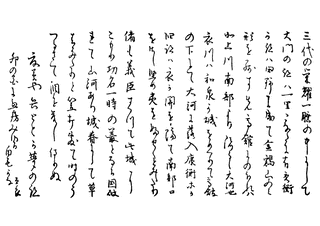 三代の栄耀一睡の中にして
大門の跡は一里こなたに有秀衡
か跡は田野に成て金鶏山のミ
形を残す先高館にのほれは
北上川南部より流るゝ大河也
衣川は和泉か城をめくりて高館
の下にて大河に落入康衡等か
旧跡は衣か関を隔て南部口
をさし堅め夷をふせくとみえたり
偖も義臣すくつて此城にこ
もり功名一時の叢となる国破
れて山河あり城春にして草
青みたりと笠打敷て時のう
つるまて泪を落し侍りぬ
夏草や兵ともか夢の跡
卯の花に兼房みゆる白毛かな 曽良